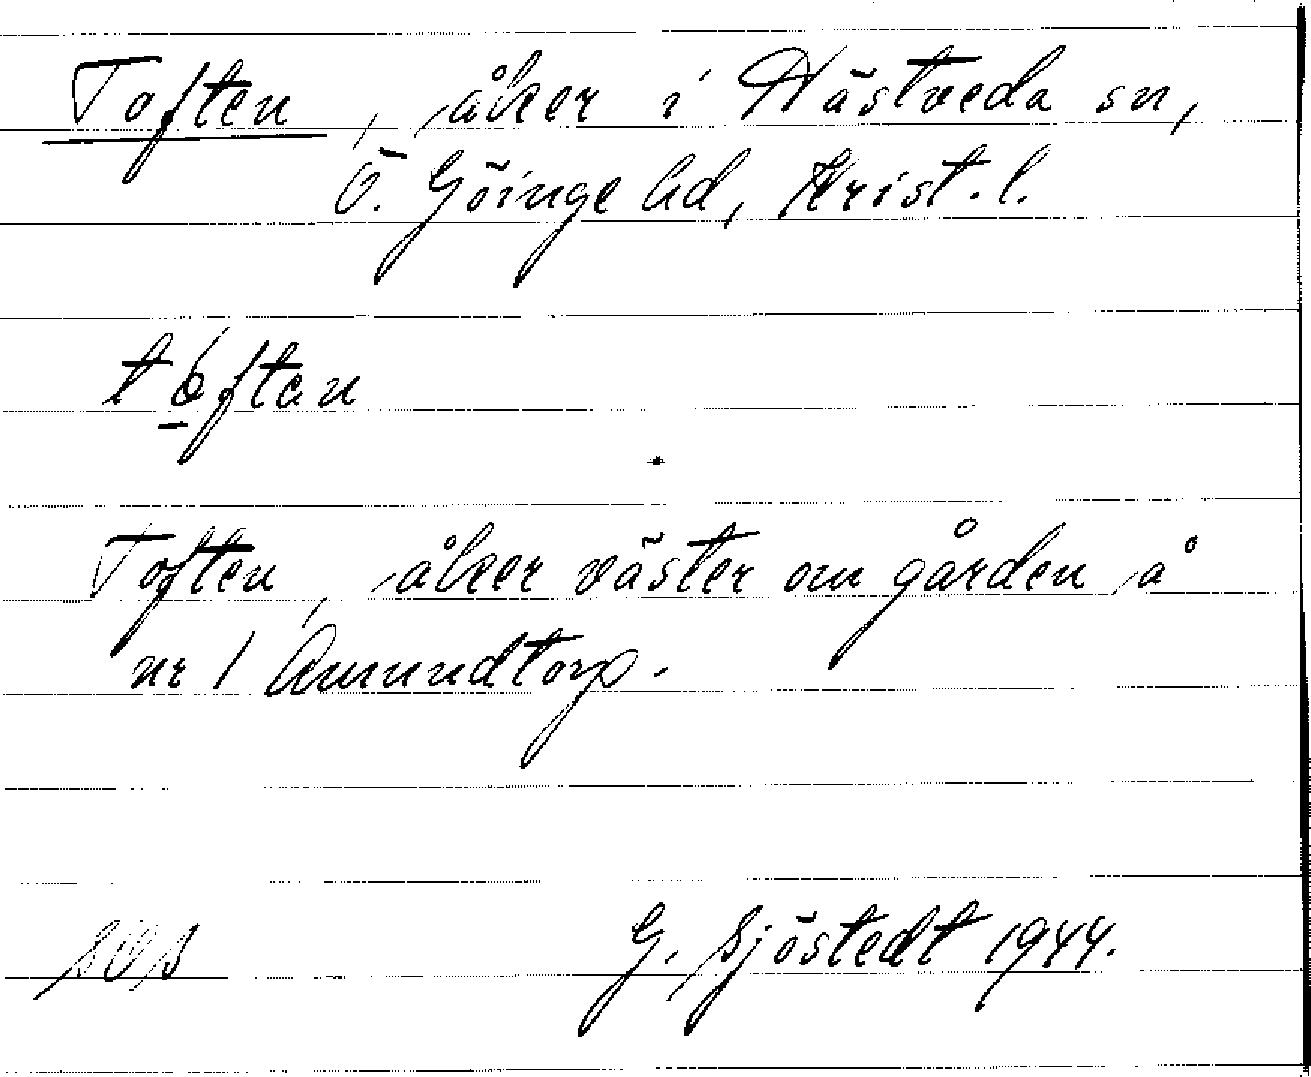 Toften, åker i Hästveda sn,
Ö. Göinge hd, Krist. l.
tóftan
Toften, åker väster om gården å
nr 1 Amundtorp.
G. Sjöstedt 1944.